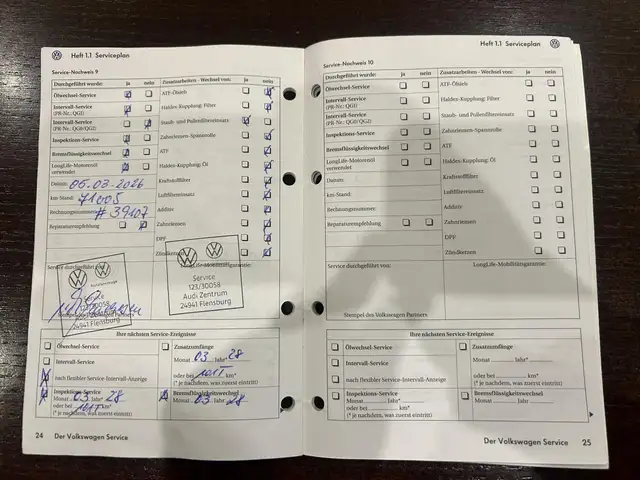 Heft 1.1 Serviceplan
Service-Nachweis 9
Durchgeführt wurde: ja nein
Ölwechsel-Service
Intervall-Service
(PR-Nr.: QG1)
Intervall-Service
(PR-Nr.: QG0/QG2)
Inspektions-Service
Bremsflüssigkeitswechsel
LongLife-Motorenöl
verwendet
Datum: 05-03-2026
km-Stand: 71005
Rechnungsnummer: # 39107
Reparaturempfehlung
Zusatzarbeiten - Wechsel von: ja nein
ATF-Ölsieb
Haldex-Kupplung: Filter
Staub- und Pollenfiltereinsatz
Zahnriemen-Spannrolle
ATF
Haldex-Kupplung: Öl
Kraftstofffilter
Luftfiltereinsatz
Additiv
Zahnriemen
DPF
Zündkerzen
Service durchgeführt von:
LongLife-Mobilitätsgarantie:
30058
24941 Flensburg
Service
123/30058
Audi Zentrum
24941 Flensburg
Ihre nächsten Service-Ereignisse
Ölwechsel-Service
Intervall-Service
nach flexibler Service-Intervall-Anzeige
Inspektions-Service
Monat 03 Jahr* 28
oder bei 101T km*
(* je nachdem, was zuerst eintritt)
Zusatzumfänge
Monat 03 Jahr* 28
oder bei 101T km*
(* je nachdem, was zuerst eintritt)
Bremsflüssigkeitswechsel
Monat 03 Jahr 28
24 Der Volkswagen Service
Heft 1.1 Serviceplan
Service-Nachweis 10
Durchgeführt wurde: ja nein
Ölwechsel-Service
Intervall-Service
(PR-Nr.: QG1)
Intervall-Service
(PR-Nr.: QG0/QG2)
Inspektions-Service
Bremsflüssigkeitswechsel
LongLife-Motorenöl
verwendet
Datum:
km-Stand:
Rechnungsnummer:
Reparaturempfehlung
Zusatzarbeiten - Wechsel von: ja nein
ATF-Ölsieb
Haldex-Kupplung: Filter
Staub- und Pollenfiltereinsatz
Zahnriemen-Spannrolle
ATF
Haldex-Kupplung: Öl
Kraftstofffilter
Luftfiltereinsatz
Additiv
Zahnriemen
DPF
Zündkerzen
Service durchgeführt von:
LongLife-Mobilitätsgarantie:
Stempel des Volkswagen Partners
Ihre nächsten Service-Ereignisse
Ölwechsel-Service
Intervall-Service
nach flexibler Service-Intervall-Anzeige
Inspektions-Service
Monat Jahr*
oder bei km*
(* je nachdem, was zuerst eintritt)
Zusatzumfänge
Monat Jahr*
oder bei km*
(* je nachdem, was zuerst eintritt)
Bremsflüssigkeitswechsel
Monat Jahr
Der Volkswagen Service 25